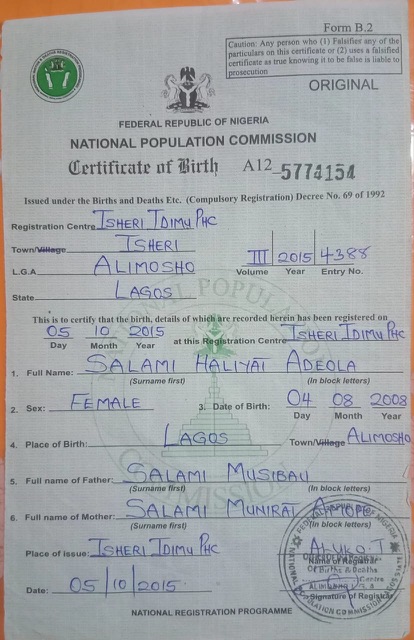 Form B.2
Caution: Any person who (1) Falsifies any of the
particulars on this certificate or (2) uses a falsified
certificate as true knowing it to be false is liable to
prosecution
ORIGINAL
FEDERAL REPUBLIC OF NIGERIA
NATIONAL POPULATION COMMISSION
Certificate of Birth A12 5774154
Issued under the Births and Deaths Etc. (Compulsory Registration) Decree No. 69 of 1992
Registration Centre ISHERI IDIMU PHC
Town/Village ISHERI
L.G.A ALIMOSHO III 2015 4388
Volume Year Entry No.
State LAGOS
This is to certify that the birth, details of which are recorded herein has been registered on
05 10 2015 at this Registration Centre ISHERI IDIMU PHC
Day Month Year
1. Full Name: SALAMI HALIYAT ADEOLA
(Surname first) (In block letters)
2. Sex: FEMALE 3. Date of Birth: 04 08 2008
Day Month Year
4. Place of Birth: LAGOS Town/Village ALIMOSHO
5. Full name of Father: SALAMI MUSIBAU
(Surname first) (In block letters)
6. Full name of Mother: SALAMI MUNIRAT
(Surname first) (In block letters)
Place of issue: ISHERI IDIMU PHC ALUKO.T
Name of Registrar
Of Births & Deaths
Centre
Date: 05/10/2015 Signature of Registrar
NATIONAL REGISTRATION PROGRAMME